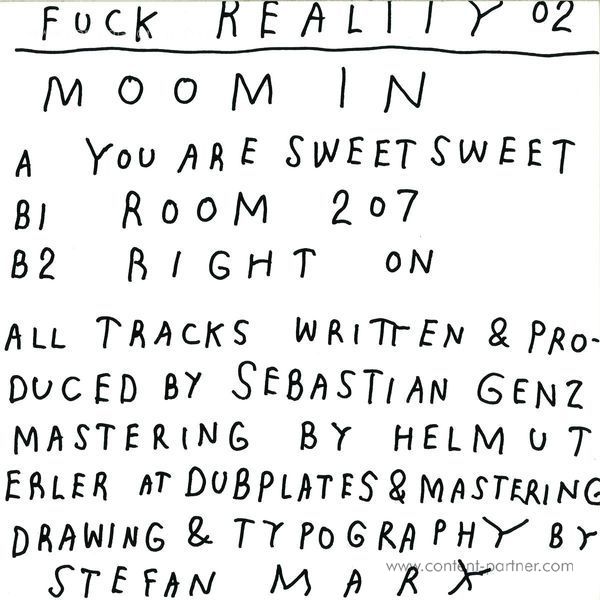 FUCK REALITY 02
MOOMIN
A YOU ARE SWEET SWEET
B1 ROOM 207
B2 RIGHT ON
ALL TRACKS WRITTEN & PRO-
DUCED BY SEBASTIAN GENZ
MASTERING BY HELMUT
ERLER AT DUBPLATES & MASTERING
DRAWING & TYPOGRAPHY BY
STEFAN MARX
www.content-partner.com